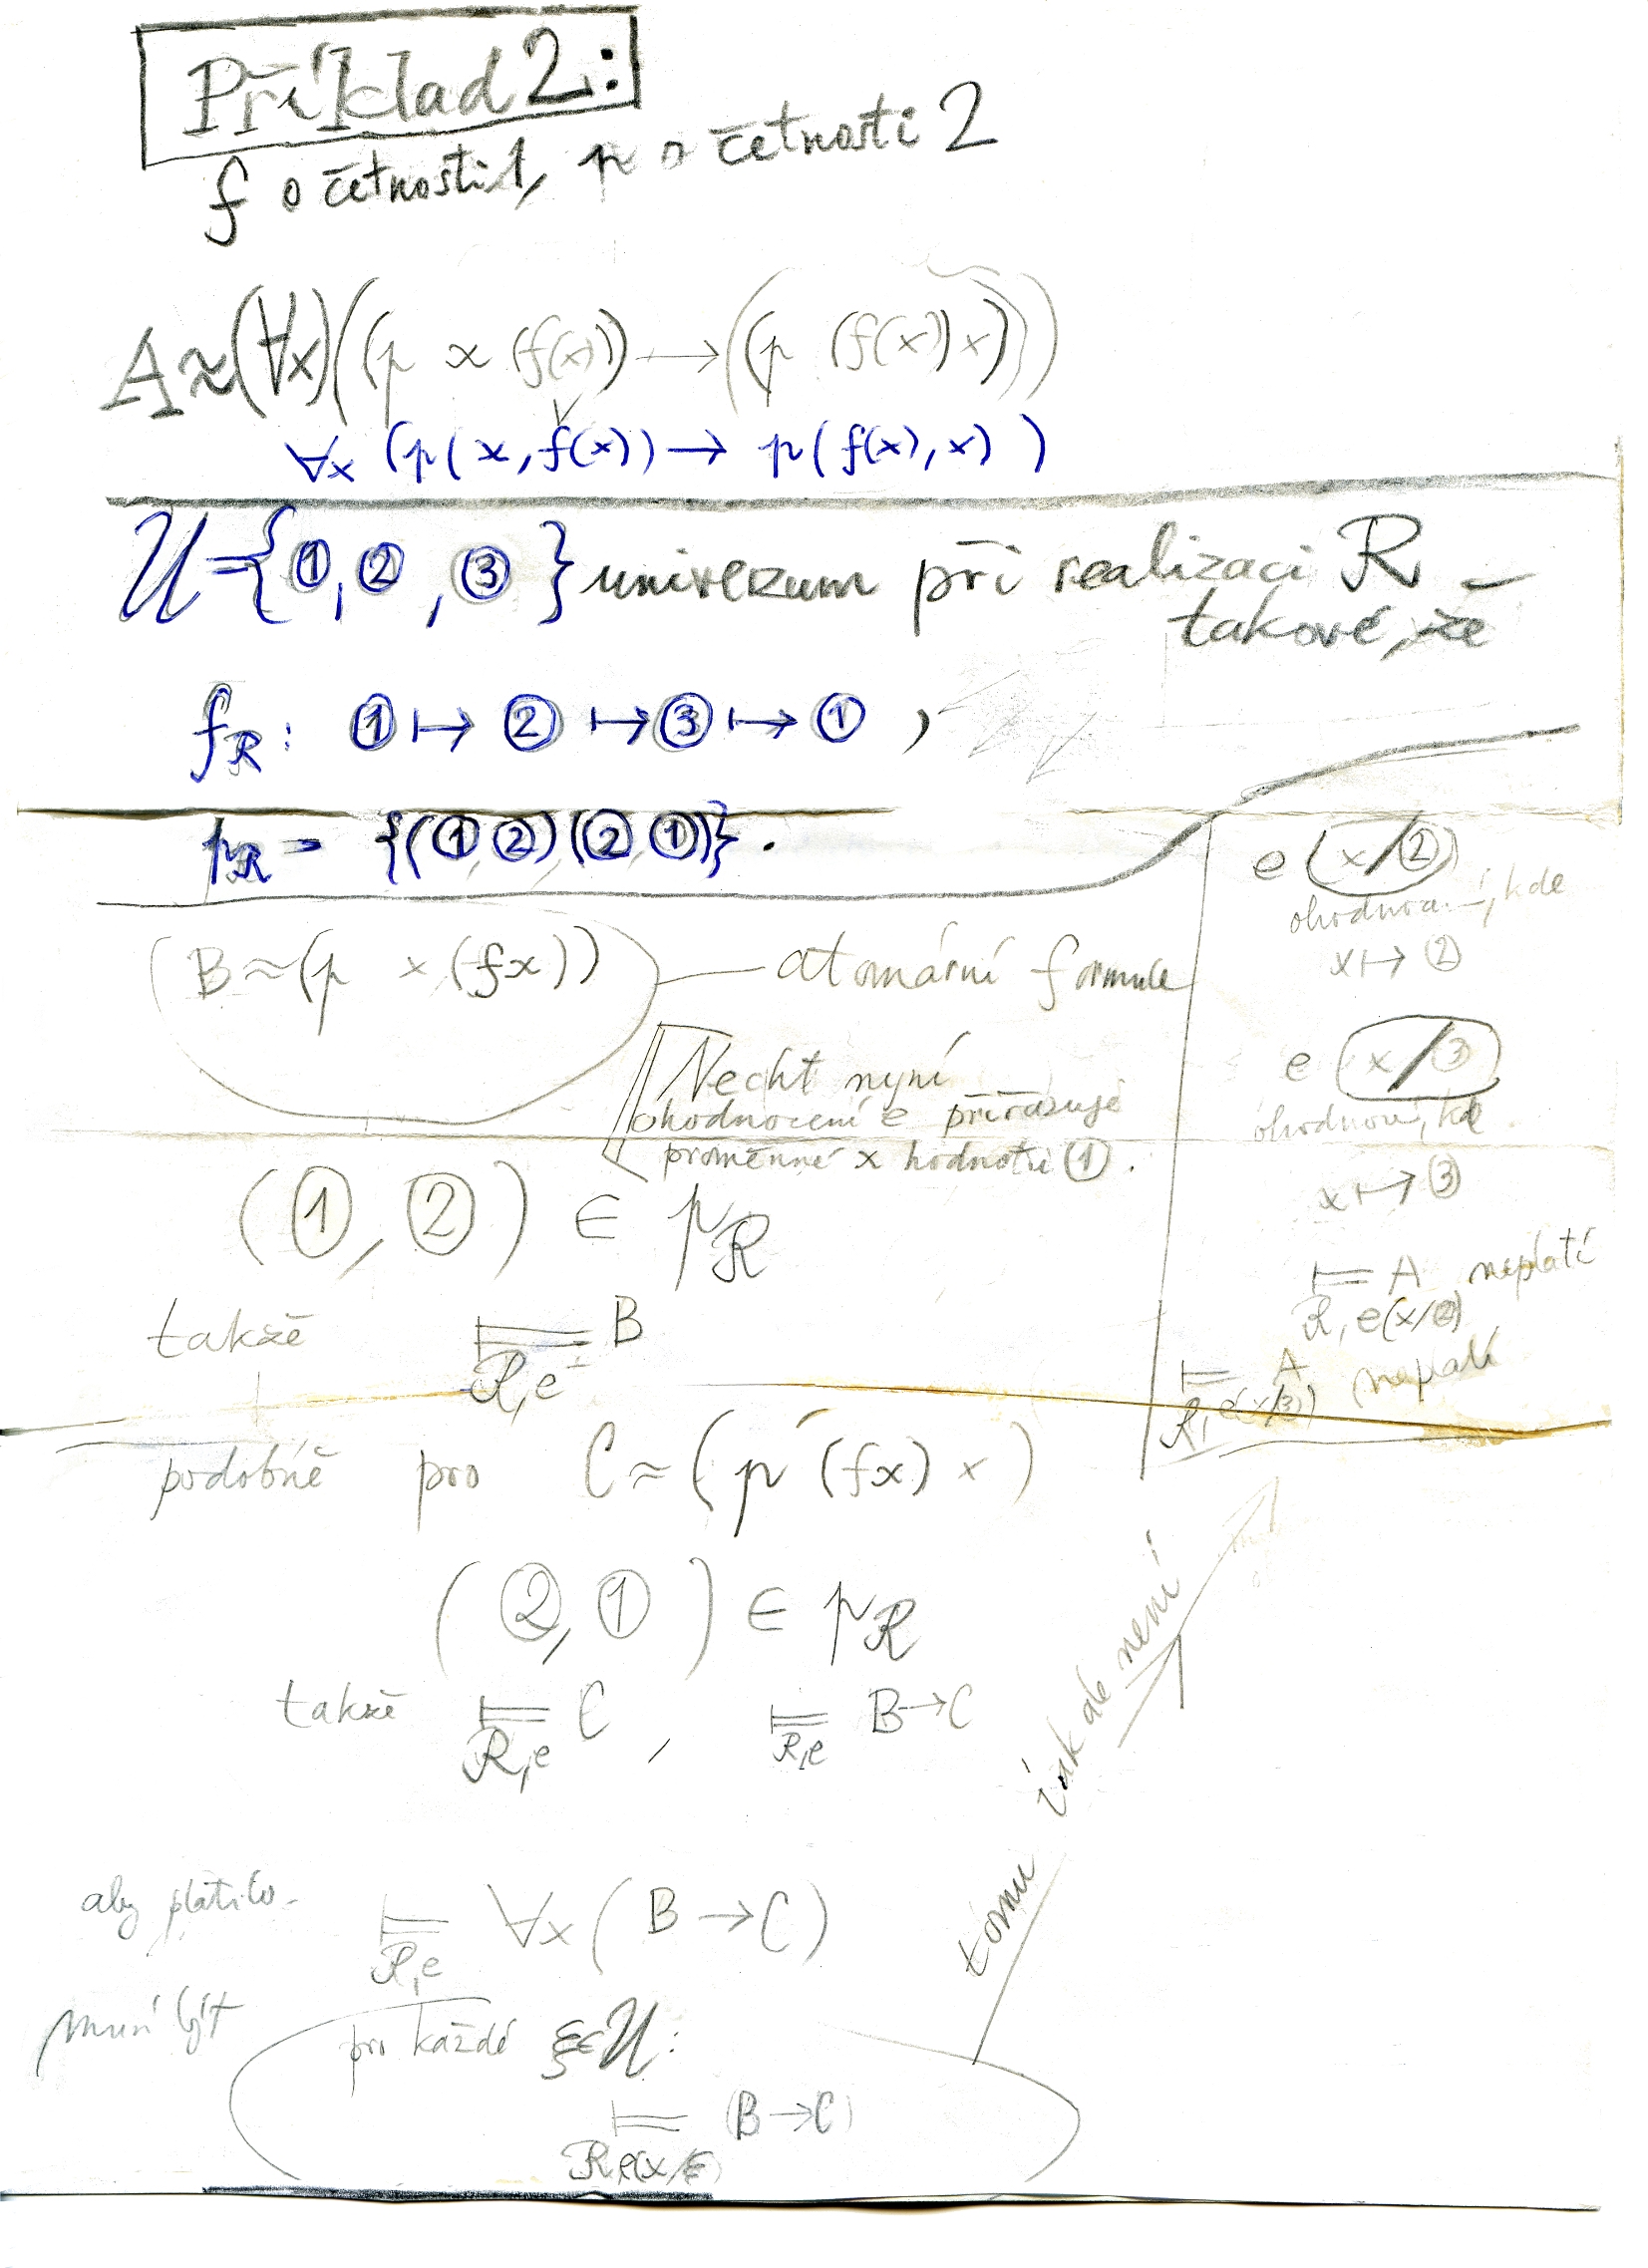 Příklad 2:
f o četnosti 1, p o četnosti 2
A ≈ (∀x)((p x (f(x))) → (p (f(x)) x))
∀x (p(x, f(x)) → p(f(x), x))
U = {①, ②, ③} univerzum při realizaci R
takové, že
f_R : ① ↦ ② ↦ ③ ↦ ①,
p_R = {(① ②)(② ①)}.
B ≈ (p x (fx)) — atomární formule
Nechť nyní
ohodnocení e přiřazuje
proměnné x hodnotu ①.
(①, ②) ∈ p_R
takže ⊨ B
R, e
podobně pro C ≈ (p (fx) x)
(②, ①) ∈ p_R
takže ⊨ C , ⊨ B → C
R, e R, e
aby platilo
⊨ ∀x (B → C)
R, e
musí být
pro každé ξ ∈ U:
⊨ (B → C)
R, e(x/ξ)
tomu tak ale není
e (x/②)
, kde
x ↦ ②
e (x/③)
x ↦ ③
⊨ A neplatí
R, e(x/②)
⊨ A neplatí
R, e(x/③)